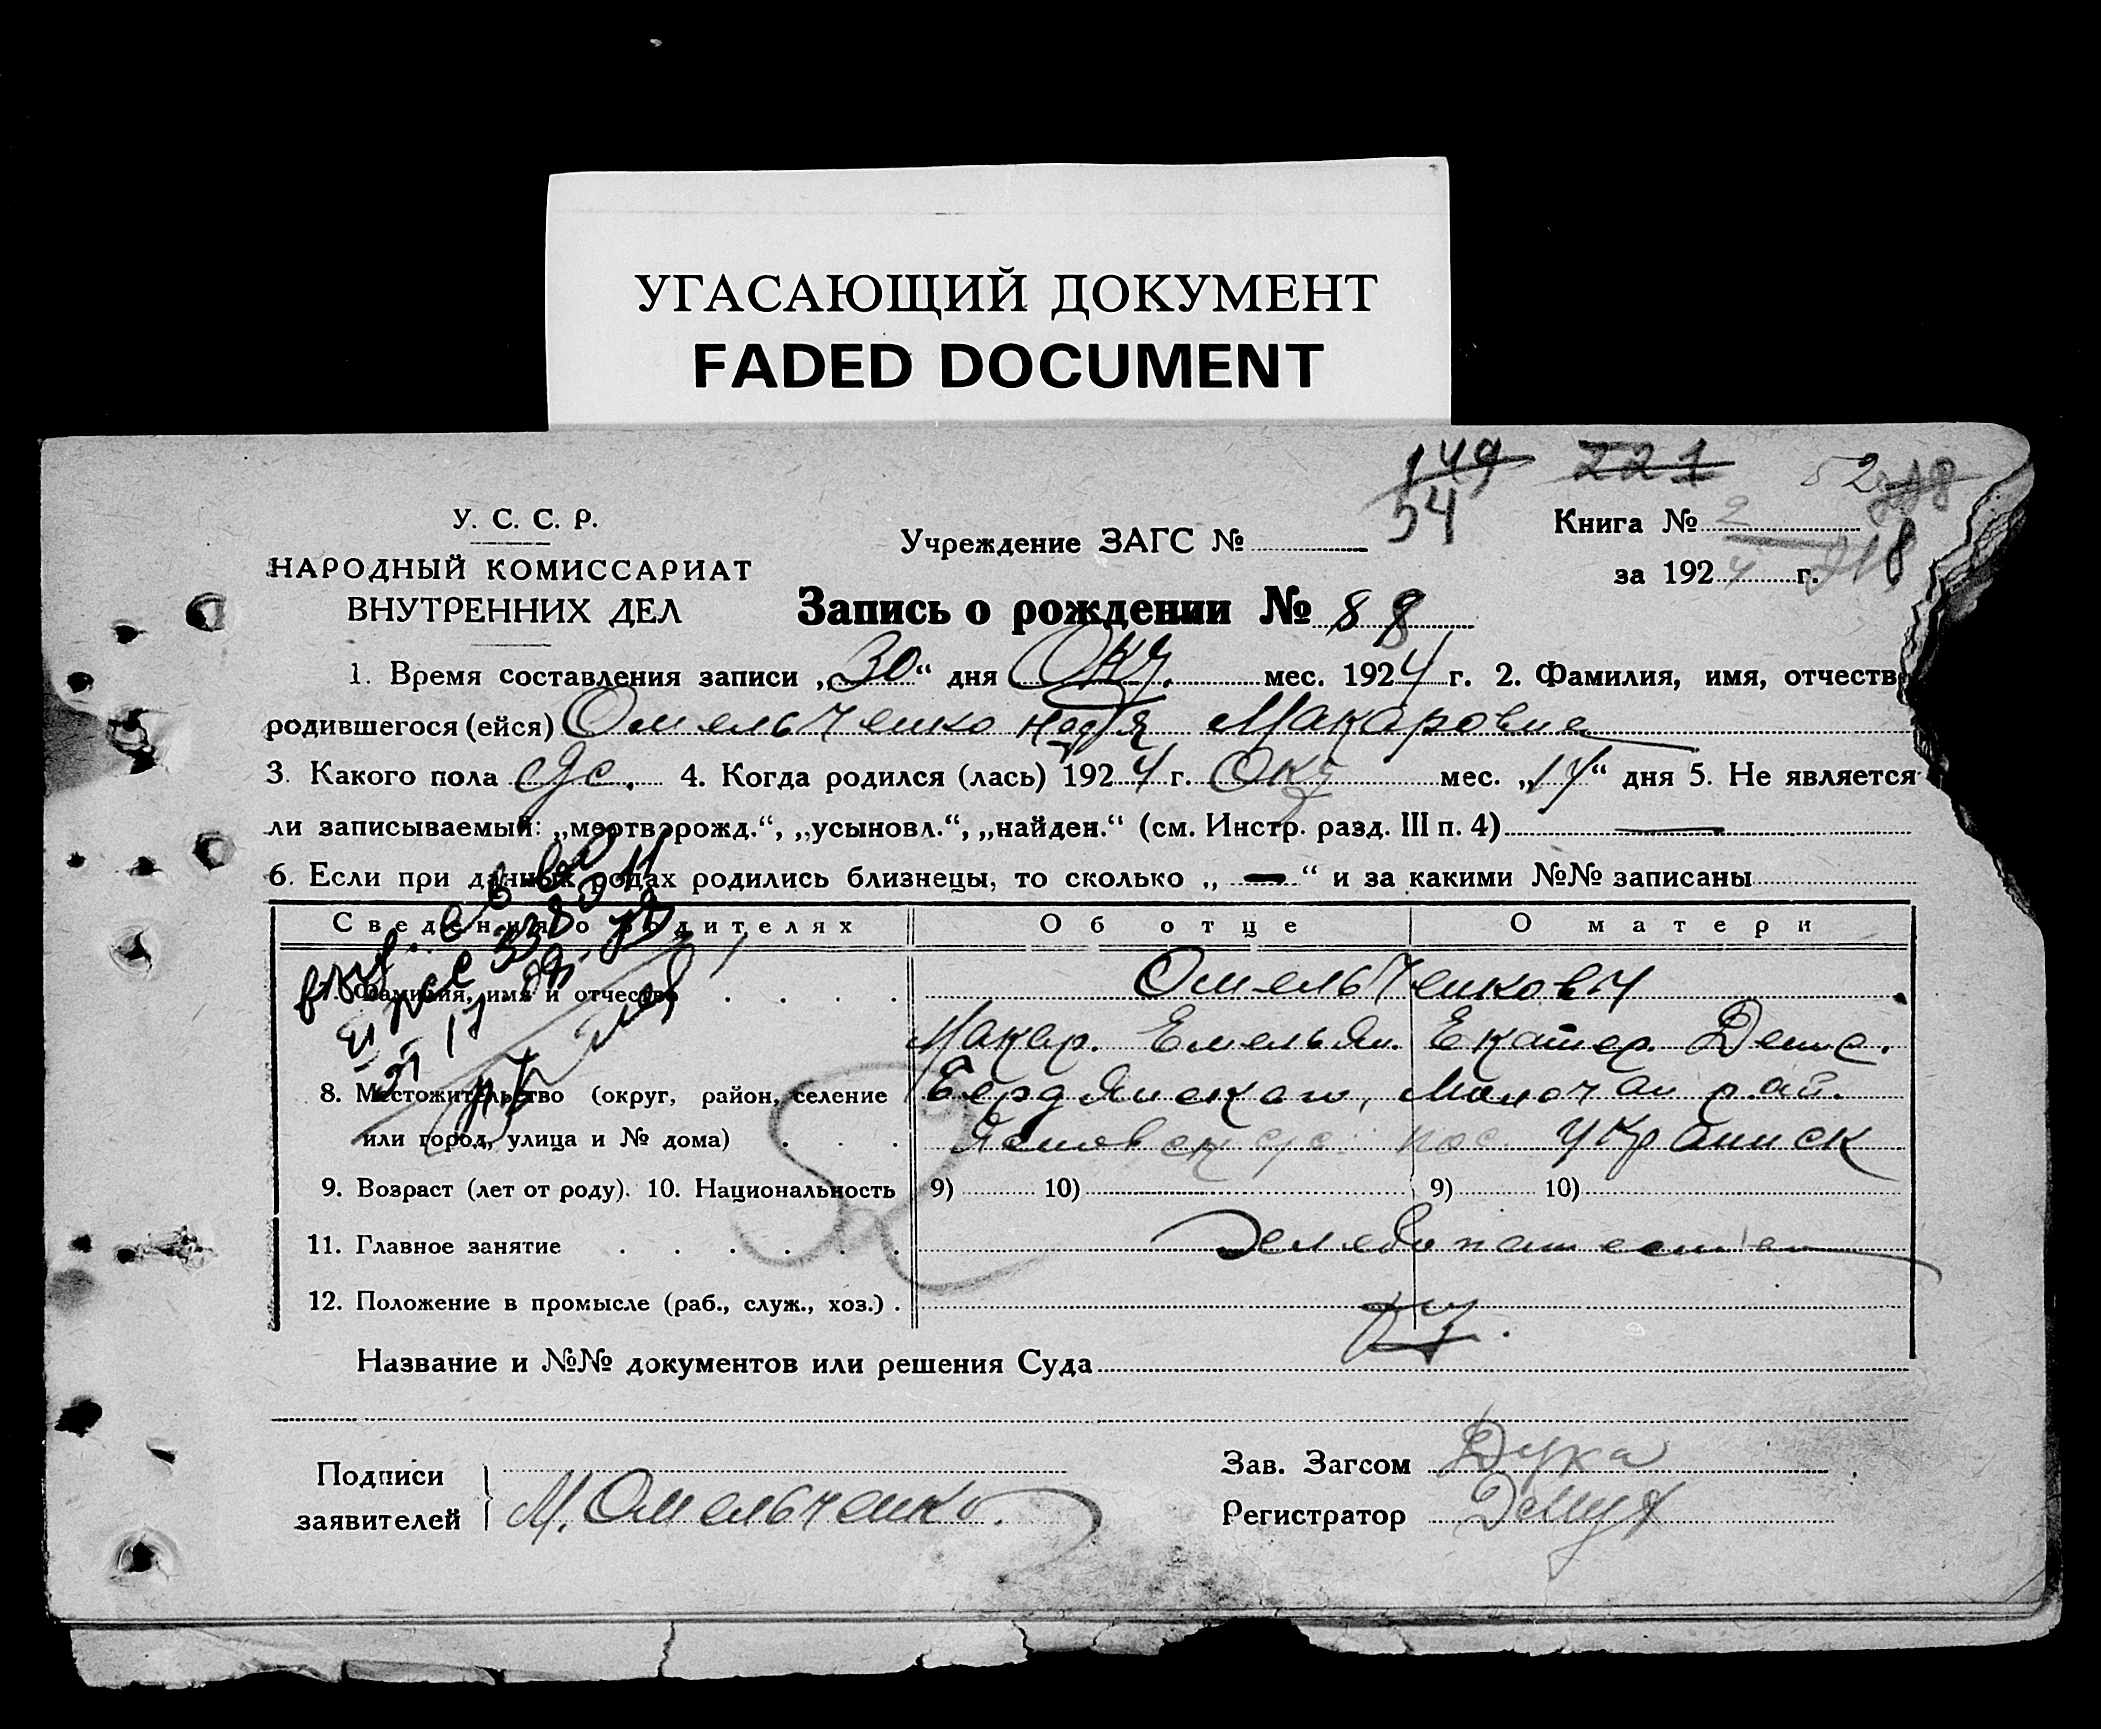 УГАСАЮЩИЙ ДОКУМЕНТ
FADED DOCUMENT
149 221 52
54
У. С. С. Р.
НАРОДНЫЙ КОМИССАРИАТ
ВНУТРЕННИХ ДЕЛ
Учреждение ЗАГС №
Книга № 2
за 1924 г. 218
Запись о рождении № 88
1. Время составления записи „30“ дня Окт. мес. 1924 г. 2. Фамилия, имя, отчеств
родившегося (ейся) Омельченко Надья Макаровне
3. Какого пола Же. 4. Когда родился (лась) 1924 г. Окт мес. „14“ дня 5. Не является
ли записываемый: „мертворожд.“, „усыновл.“, „найден.“ (см. Инстр. разд. III п. 4) —
6. Если при данных родах родились близнецы, то сколько „ — “ и за какими №№ записаны
Сведения о родителях Об отце О матери
7. Фамилия, имя и отчество Омельченковы
Макар. Емельян. Екатер. Дени.
8. Местожительство (округ, район, селение Бердянскаго, Молочан рай.
или город, улица и № дома) с/с пос. Украинск
9. Возраст (лет от роду). 10. Национальность 9) 10) 9) 10)
11. Главное занятие
12. Положение в промысле (раб., служ., хоз.)
Название и №№ документов или решения Суда
Подписи
заявителей М. Омельченко.
Зав. Загсом Дука
Регистратор